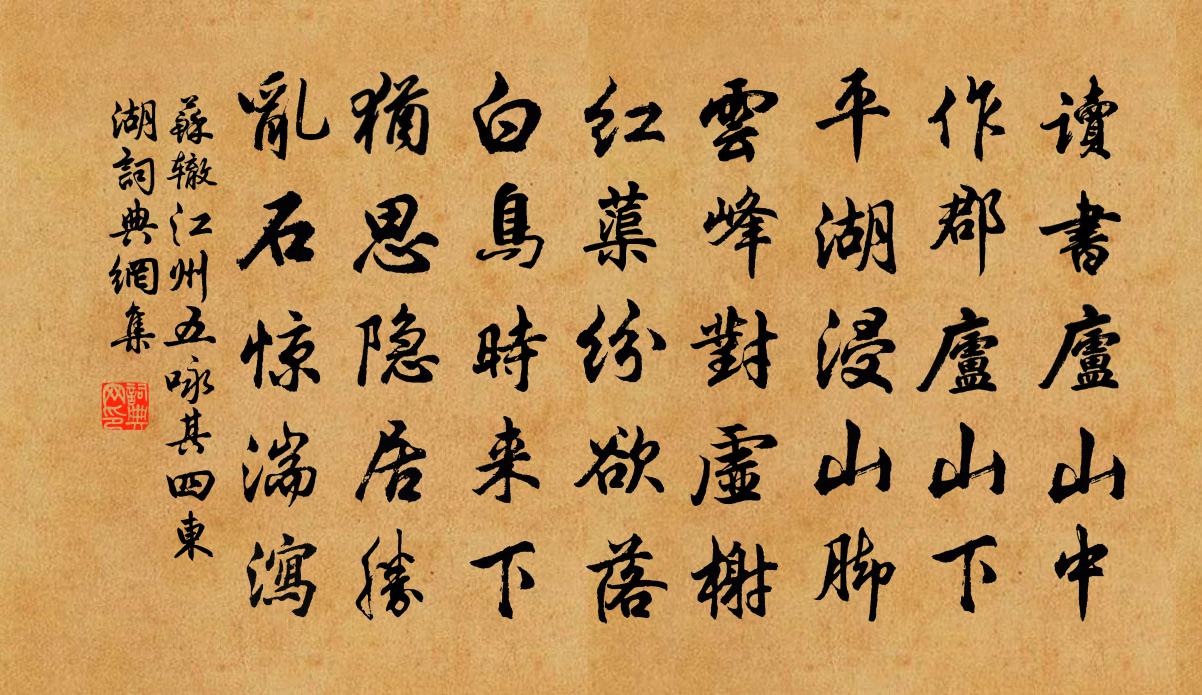 讀書廬山中
作郡廬山下
平湖浸山脚
雲峰對虛榭
紅蕖紛欲落
白鳥時来下
猶思隐居勝
亂石惊湍瀉
蘇辙江州五咏其四東
湖詞典網集
詞典
网印